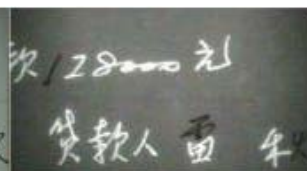 款128000元
贷款人雷